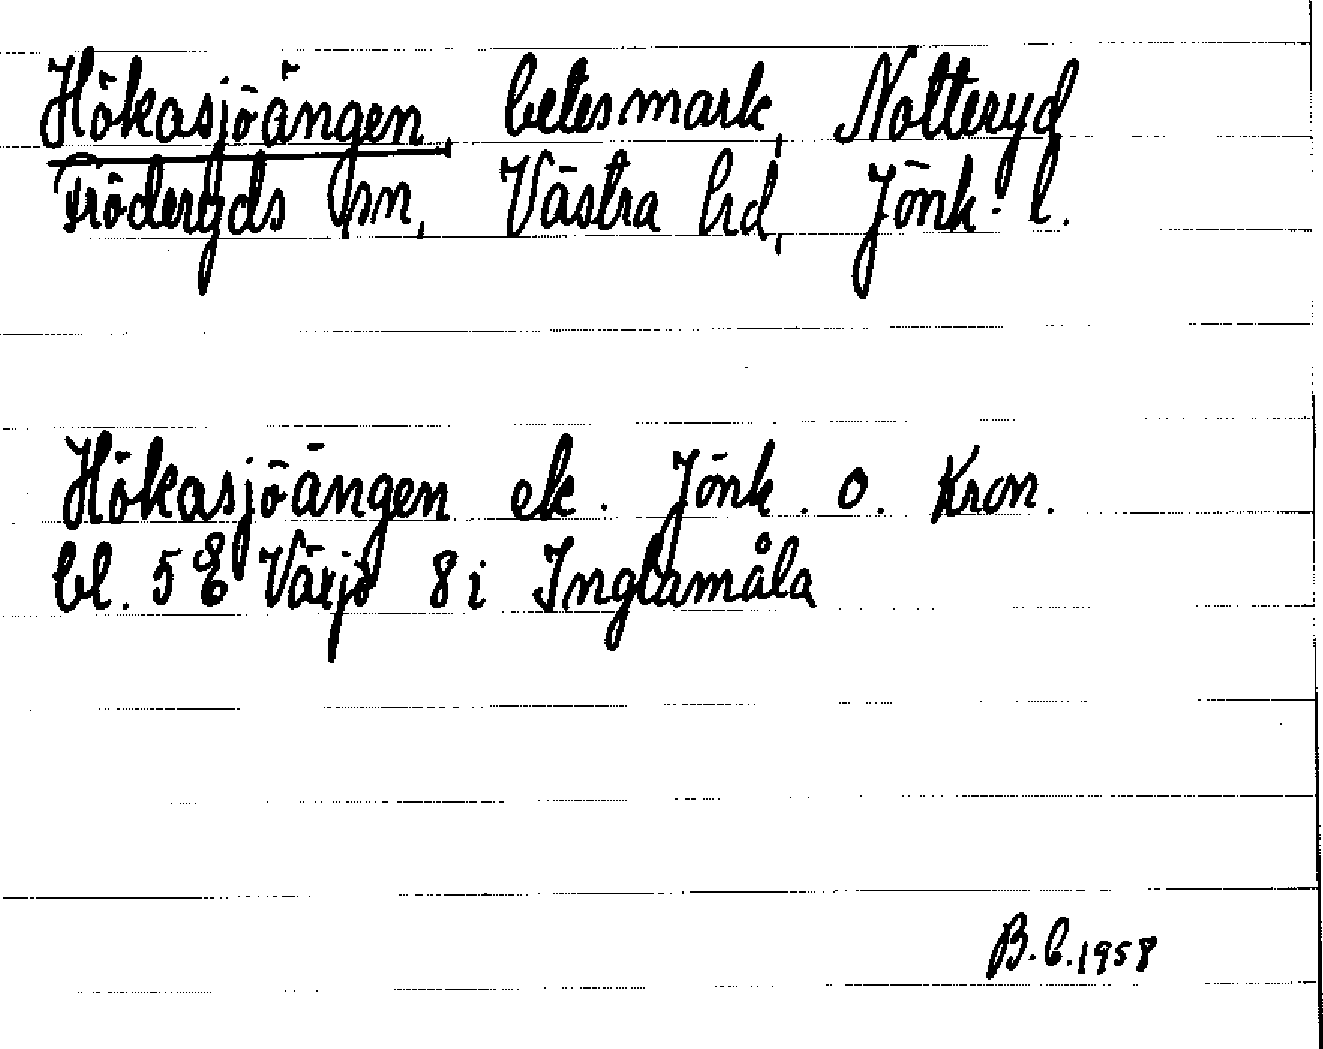 Hökasjöängen, betesmark, Nolteryd
Fröderyds sn, Västra hd, Jönk. l.
Hökasjöängen ek. Jönk. o. Kron.
bl. 5 E Växjö 8 i Inglamåla
B. 1958